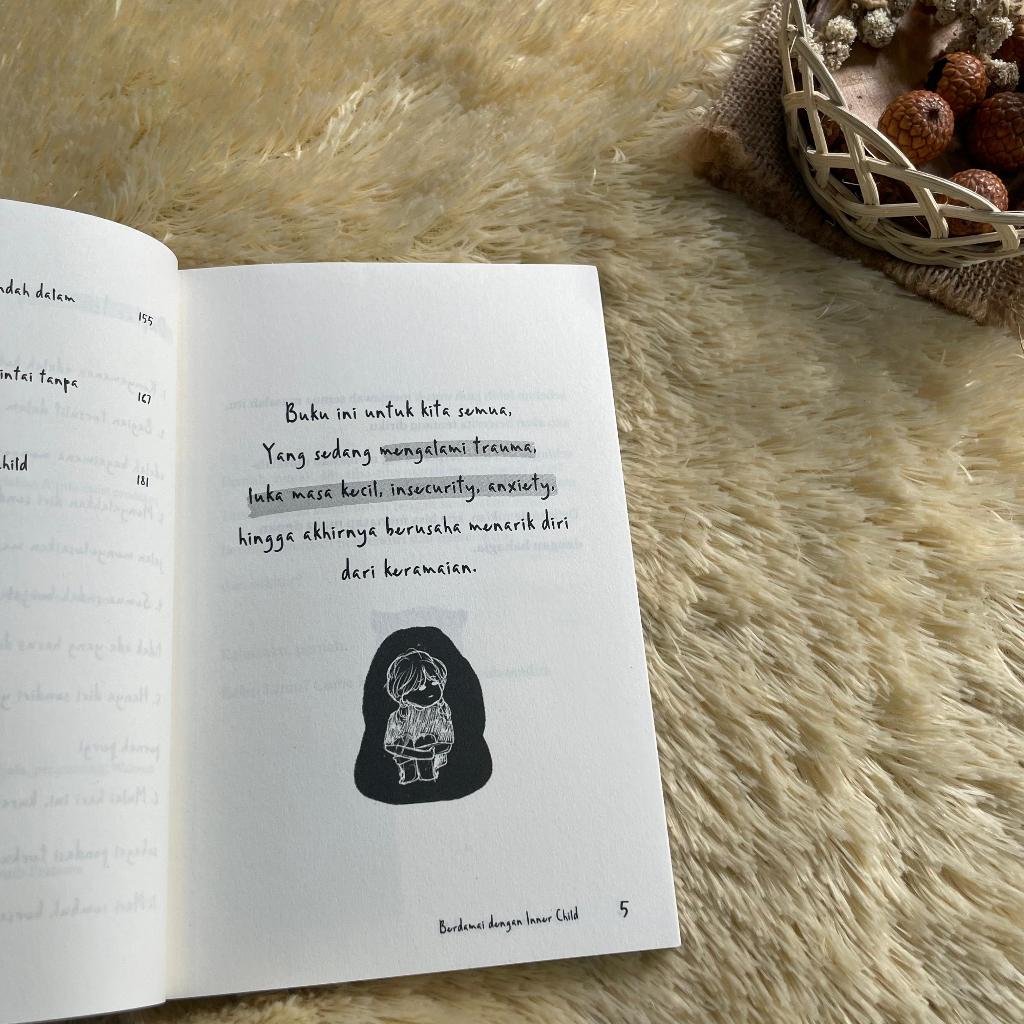 ndah dalam
155
intai tanpa
167
child
181
Buku ini untuk kita semua,
Yang sedang mengalami trauma,
luka masa kecil, insecurity, anxiety,
hingga akhirnya berusaha menarik diri
dari keramaian.
Berdamai dengan Inner Child
5